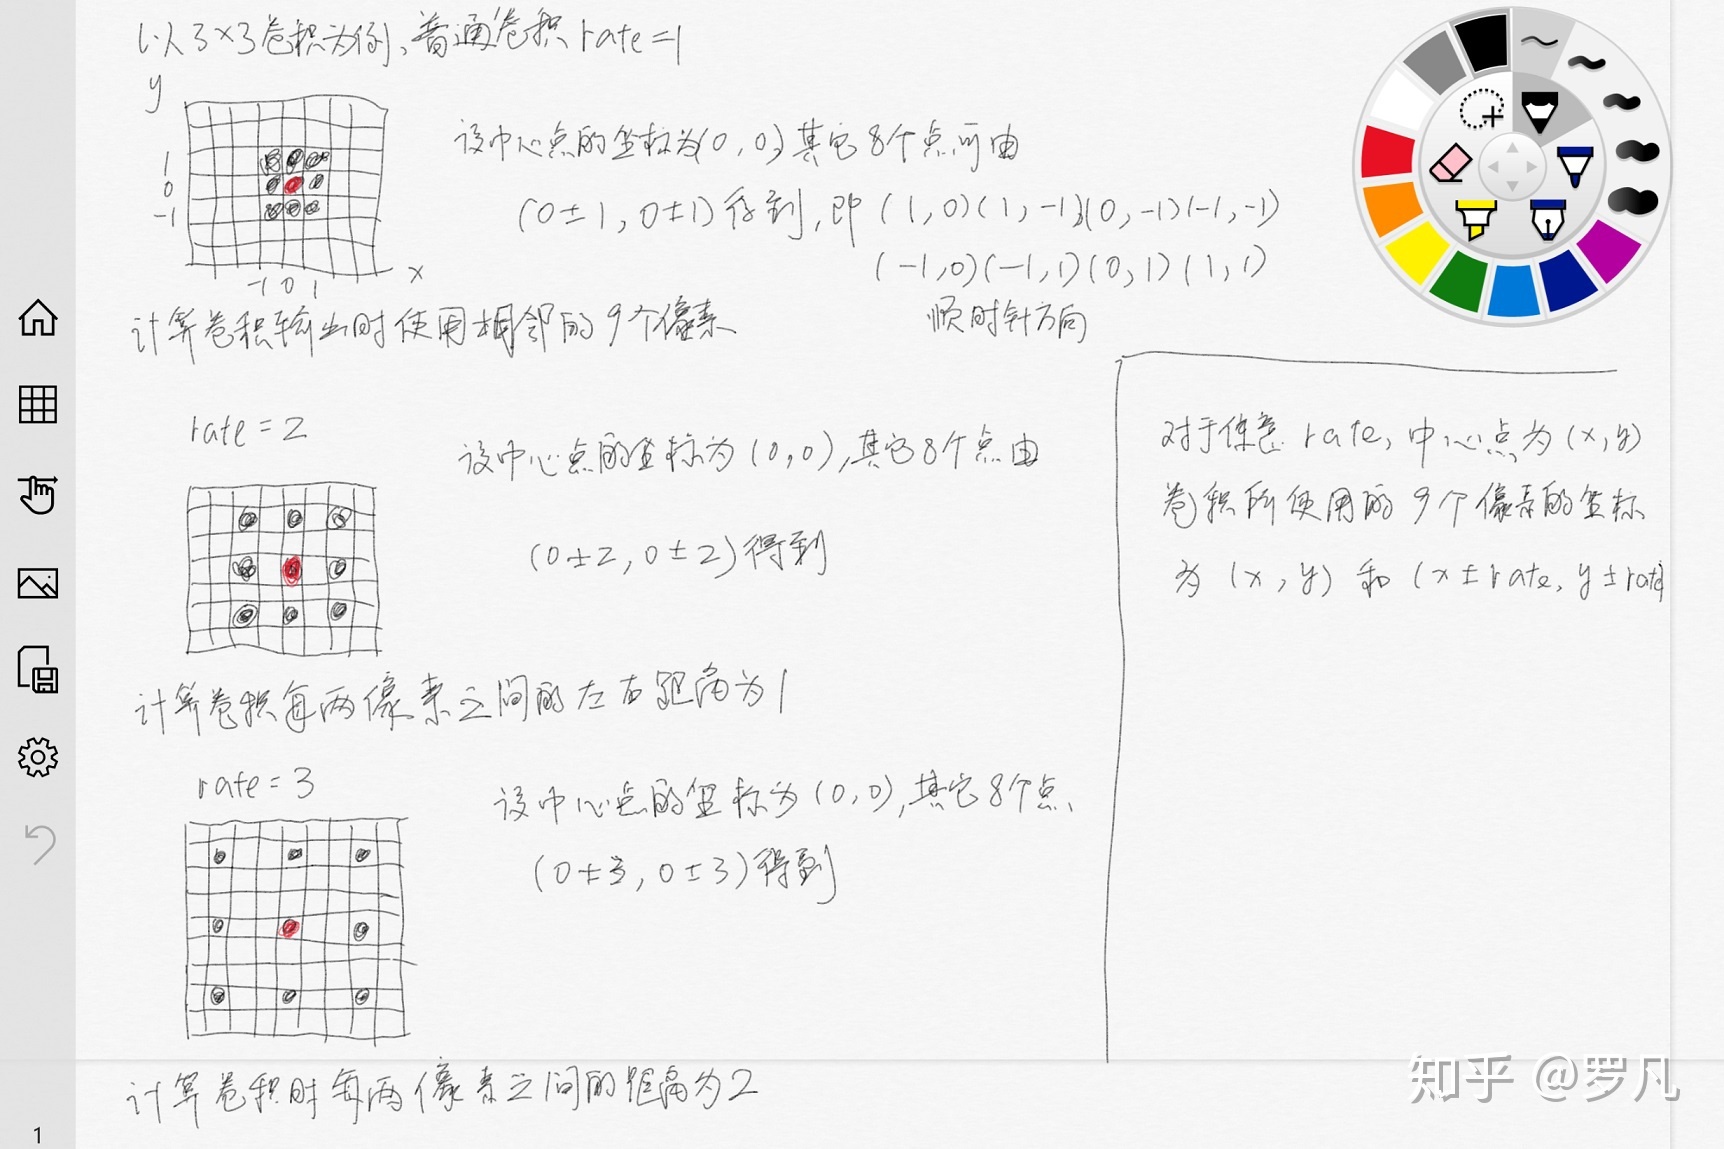 以3×3卷积为例,普通卷积rate=1
y
1
0
-1
-1 0 1
x
设中心点的坐标为(0,0)其它8个点可由
(0±1,0±1)得到,即(1,0)(1,-1)(0,-1)(-1,-1)
(-1,0)(-1,1)(0,1)(1,1)
顺时针方向
计算卷积输出时使用相邻的9个像素
rate=2
设中心点的坐标为(0,0),其它8个点由
(0±2,0±2)得到
计算卷积每两像素之间的左右距离为1
rate=3
设中心点的坐标为(0,0),其它8个点、
(0±3,0±3)得到
计算卷积时每两像素之间的距离为2
对于任意rate,中心点为(x,y)
卷积所使用的9个像素的坐标
为(x,y)和(x±rate,y±rate)
知乎 @罗凡
1